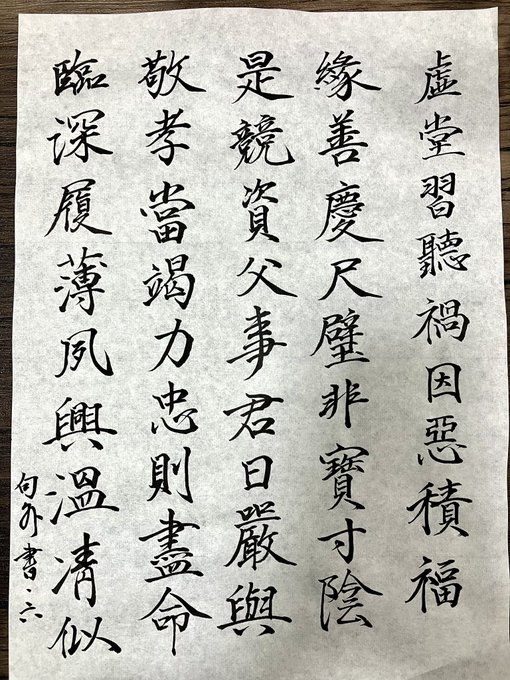 虛堂習聽禍因惡積福
緣善慶尺璧非寶寸陰
是競資父事君曰嚴與
敬孝當竭力忠則盡命
臨深履薄夙興溫凊似
句外書、六